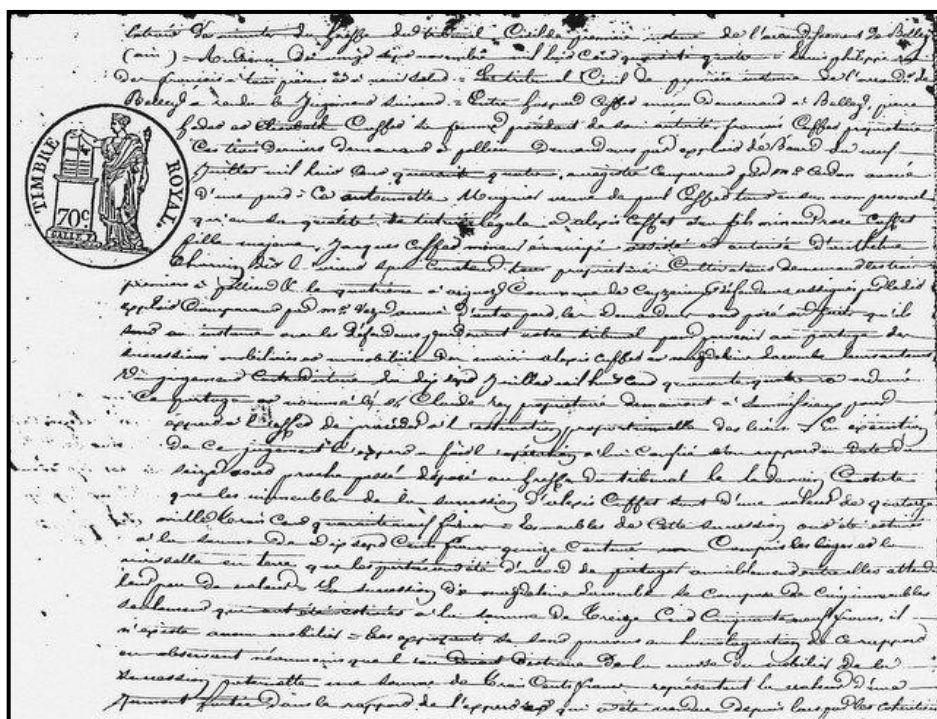 des minutes du greffe du tribunal Civil de première instance de l'arrondissement de Belley
(ain) = Audience du vingt sept novembre mil huit cent quarante quatre = Louis philippe roi
des français à tous présents et à venir salut = Le tribunal Civil de première instance de l'arrondt de
Belley a rendu le Jugement suivant = Entre Gaspard Coffet demeurant à Belley, pierre
et Elisabeth Coffet sa femme procédant de son autorité, françois Coffet propriétaire
Ces trois derniers demeurant à pollieu Demandeurs par exploit de du neuf
TIMBRE ROYAL.
70c
Juillet mil huit cent quarante quatre, enregistré Comparant par me avoué
d'une part = Et antoinette veuve de paul Coffet tant en son nom personnel
qu'en sa qualité de tutrice légale d'alexis Coffet son fils mineur, rose Coffet
fille majeure, Jacques Coffet mineur émancipé assisté et autorisé d'anthelme
son Curateur tous propriétaires Cultivateurs demeurant les trois
premiers à pollieu & le quatrième à Commune de Ceyzérieu, défendeurs assignés par ledit
exploit Comparant par me avoué D'autre part, les demandeurs ont posé en faits qu'ils
sont en instance avec les défendeurs pardevant votre tribunal pour parvenir au partage des
successions mobilières et immobilières des alexis Coffet et magdeleine leurs auteurs,
Un jugement Contradictoire du dix sept Juillet mil huit cent quarante quatre a ordonné
Ce partage et nommé le sr Claude rey propriétaire demeurant à pour
expert à l'effet de procéder à l'estimation proportionnelle des biens = En exécution
de Ce jugement l'expert a fait l'opération à lui Confiée & son rapport en date du
seize août proche passé déposé au greffe du tribunal le Constate
que les immeubles de la succession d'alexis Coffet sont d'une valeur de quatorze
mille trois Cent quarante neuf francs = Les meubles de Cette succession ont été estimés
à la somme de dix sept Cents francs quinze Centimes non Compris les linges et la
vaisselle en terre que les parties ont été d'accord de partager amiablement entre elles attendu
leur peu de valeur = La succession de magdeleine se Compose de immeubles
seulement qui ont été estimés à la somme de treize Cent Cinquante neuf francs, il
n'existe aucun mobilier = Les exposants se sont pourvus en homologation de Ce rapport
en observant néanmoins que l'on devait distraire de la masse du mobilier de la
succession paternelle une somme de trois Cents francs représentant la valeur d'une
Jument portée dans le rapport de l'expert et qui a été vendue depuis lors par les cohéritiers